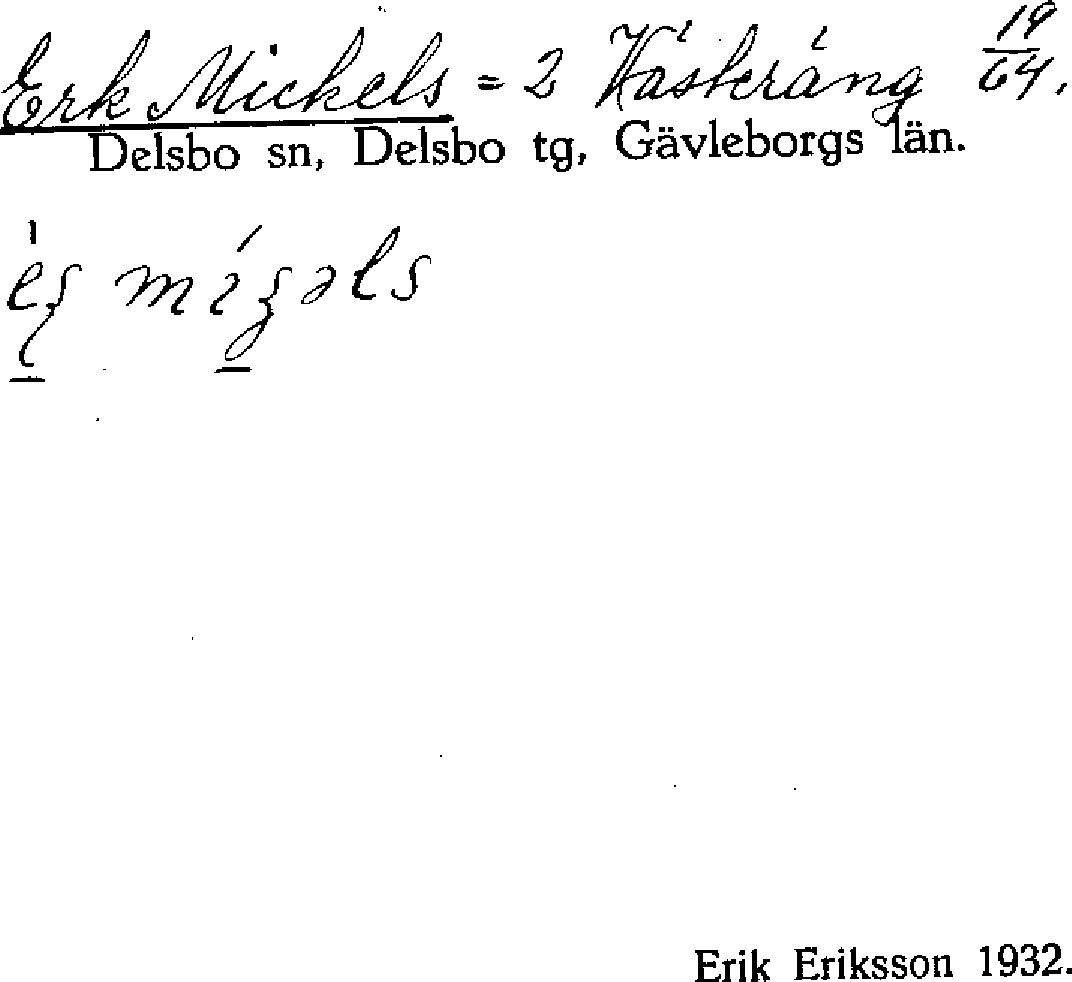 Erk Mickels = 2 Västeräng 19/64.
Delsbo sn, Delsbo tg, Gävleborgs län.
Erik Eriksson 1932.